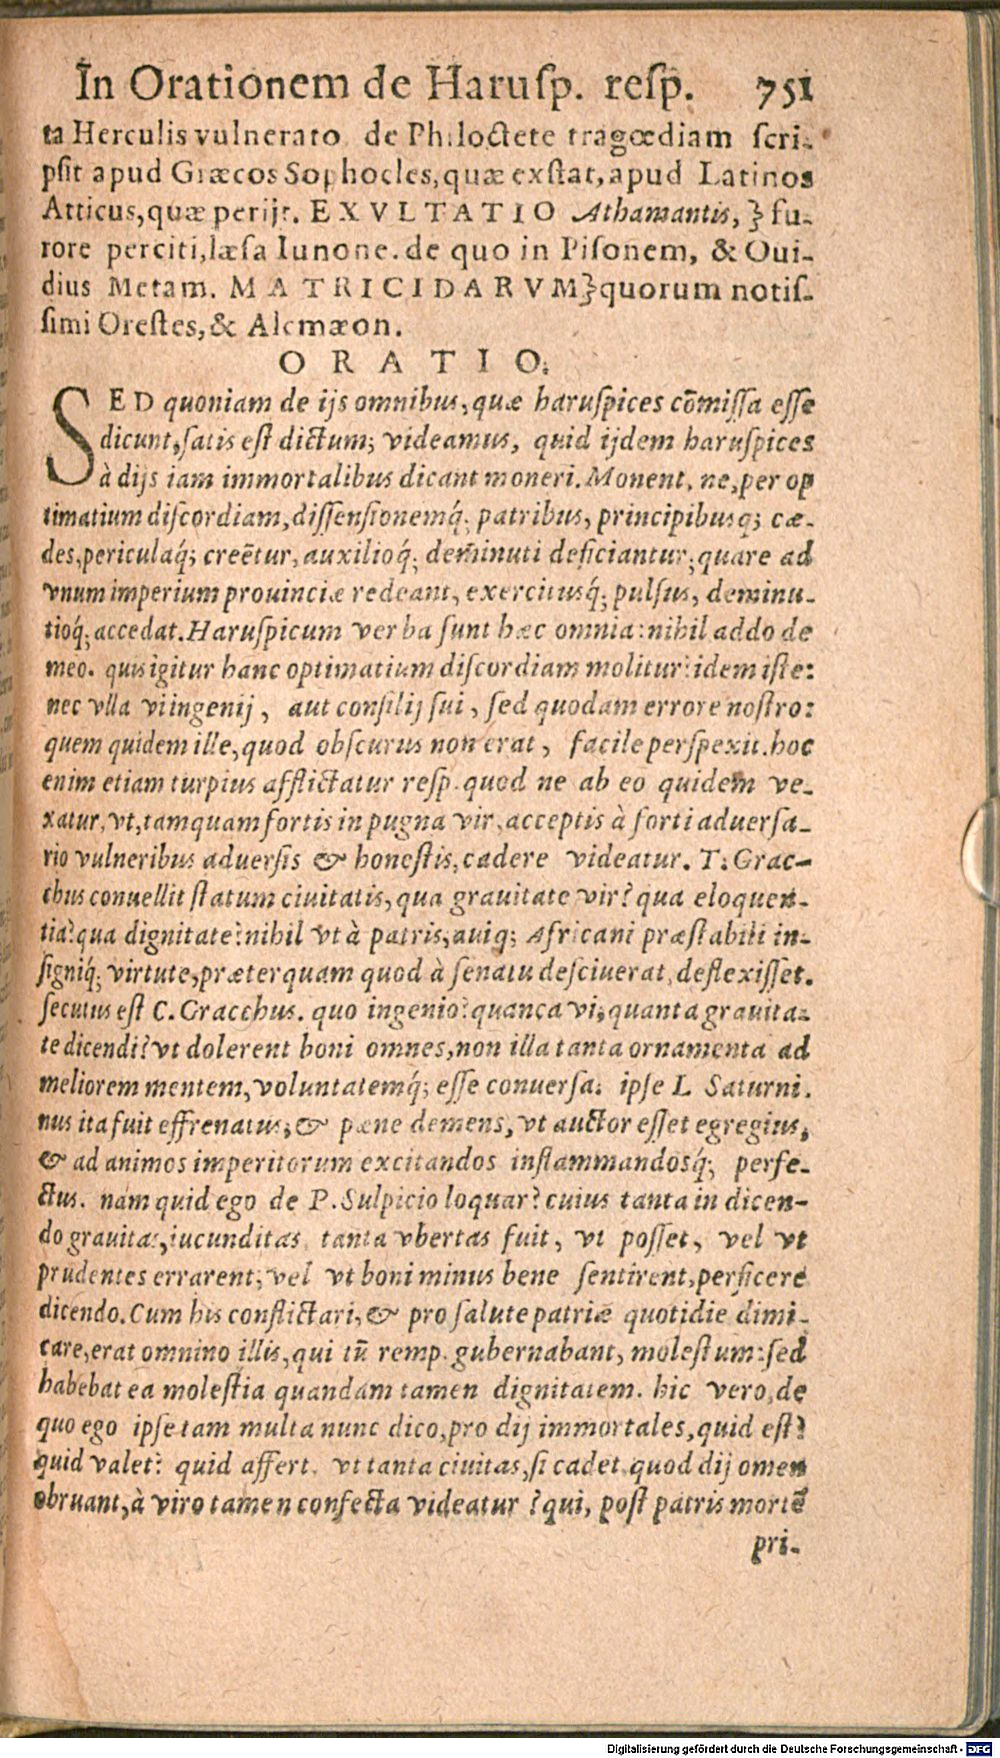 In Orationem de Haruſp. reſp. 751
ta Herculis vulnerato de Philoctete tragœdiam ſcri-
pſit apud Græcos Sophocles, quæ exſtat, apud Latinos
Atticus, quæ perijt. EXVLTATIO Athamantis, } fu-
rore perciti, læſa Iunone. de quo in Piſonem, & Oui-
dius Metam. MATRICIDARVM} quorum notiſ-
ſimi Oreſtes, & Alcmæon.
ORATIO.
SED quoniam de ijs omnibus, quæ haruſpices cōmiſſa eſſe
dicunt, ſatis eſt dictum; videamus, quid ijdem haruſpices
à dijs iam immortalibus dicant moneri. Monent, ne, per op
timatium diſcordiam, diſſenſionemq́; patribus, principibusq; cæ-
des, periculaq́; creētur, auxilioq́; deminuti deficiantur; quare ad
vnum imperium prouinciæ redeant, exercitusq́; pulſus, deminu-
tioq́; accedat. Haruſpicum verba ſunt hæc omnia: nihil addo de
meo. quis igitur hanc optimatium diſcordiam molitur? idem iſte:
nec vlla vi ingenij, aut conſilij ſui, ſed quodam errore noſtro:
quem quidem ille, quod obſcurus non erat, facile perſpexit. hoc
enim etiam turpius afflictatur reſp. quod ne ab eo quidem ve-
xatur, vt, tamquam fortis in pugna vir, acceptis à forti aduerſa-
rio vulneribus aduerſis & honeſtis, cadere videatur. T. Grac-
chus conuellit ſtatum ciuitatis, qua grauitate vir? qua eloquen-
tia? qua dignitate? nihil vt à patris, auiq; Africani præſtabili in-
ſigniq́; virtute, præterquam quod à ſenatu deſciuerat, deflexiſſet.
ſecutus eſt C. Gracchus. quo ingenio? quanca vi; quanta grauita-
te dicendi? vt dolerent boni omnes, non illa tanta ornamenta ad
meliorem mentem, voluntatemq́; eſſe conuerſa. ipſe L Saturni-
nus ita fuit effrenatus, & pæne demens, vt auctor eſſet egregius,
& ad animos imperitorum excitandos inflammandosq́; perfe-
ctus. nam quid ego de P. Sulpicio loquar? cuius tanta in dicen-
do grauitas, iucunditas tanta vbertas fuit, vt poſſet, vel vt
prudentes errarent, vel vt boni minus bene ſentirent, perficere
dicendo. Cum his conflictari, & pro ſalute patriæ quotidie dimi-
care, erat omnino illis, qui tū remp. gubernabant, moleſtum: ſed
habebat ea moleſtia quandam tamen dignitatem. hic vero, de
quo ego ipſe tam multa nunc dico, pro dij immortales, quid eſt?
quid valet? quid affert. vt tanta ciuitas, ſi cadet quod dij omen
obruant, à viro tamen confecta videatur? qui, poſt patris mortē
pri-
Digitalisierung gefördert durch die Deutsche Forschungsgemeinschaft - DFG